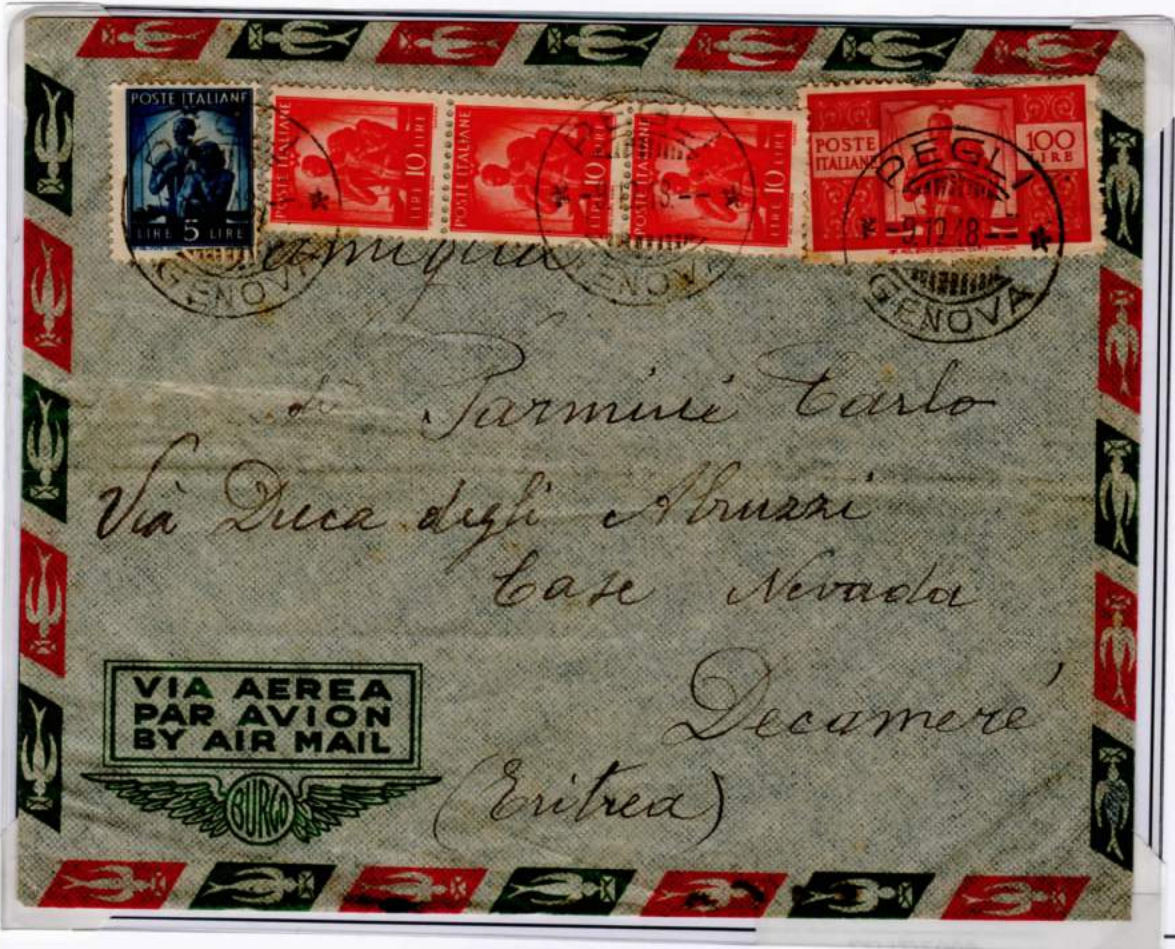 POSTE ITALIANE
LIRE 5 LIRE
POSTE ITALIANE
LIRE 10 LIRE
POSTE ITALIANE
LIRE 10 LIRE
POSTE ITALIANE
LIRE 10 LIRE
POSTE ITALIANE
100 LIRE
GENOVA
GENOVA
PEGLI
-9.12.48--
GENOVA
Famiglia
di Parmini Carlo
Via Duca degli Abruzzi
Case Nevada
Decameré
(Eritrea)
VIA AEREA
PAR AVION
BY AIR MAIL
BURGO